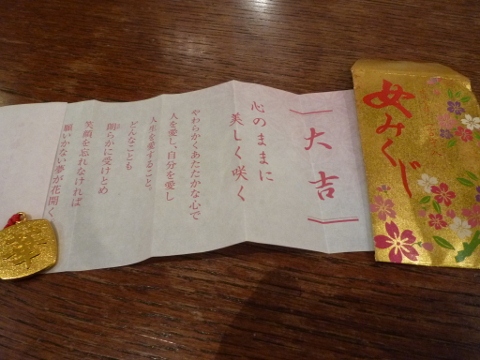 女みくじ
大吉
心のままに
美しく咲く
やわらかくあたたかな心で
人を愛し、自分を愛し
人生を愛すること。
どんなことも
朗らかに受けとめ
笑顔を忘れなければ
願いかない夢が花開く